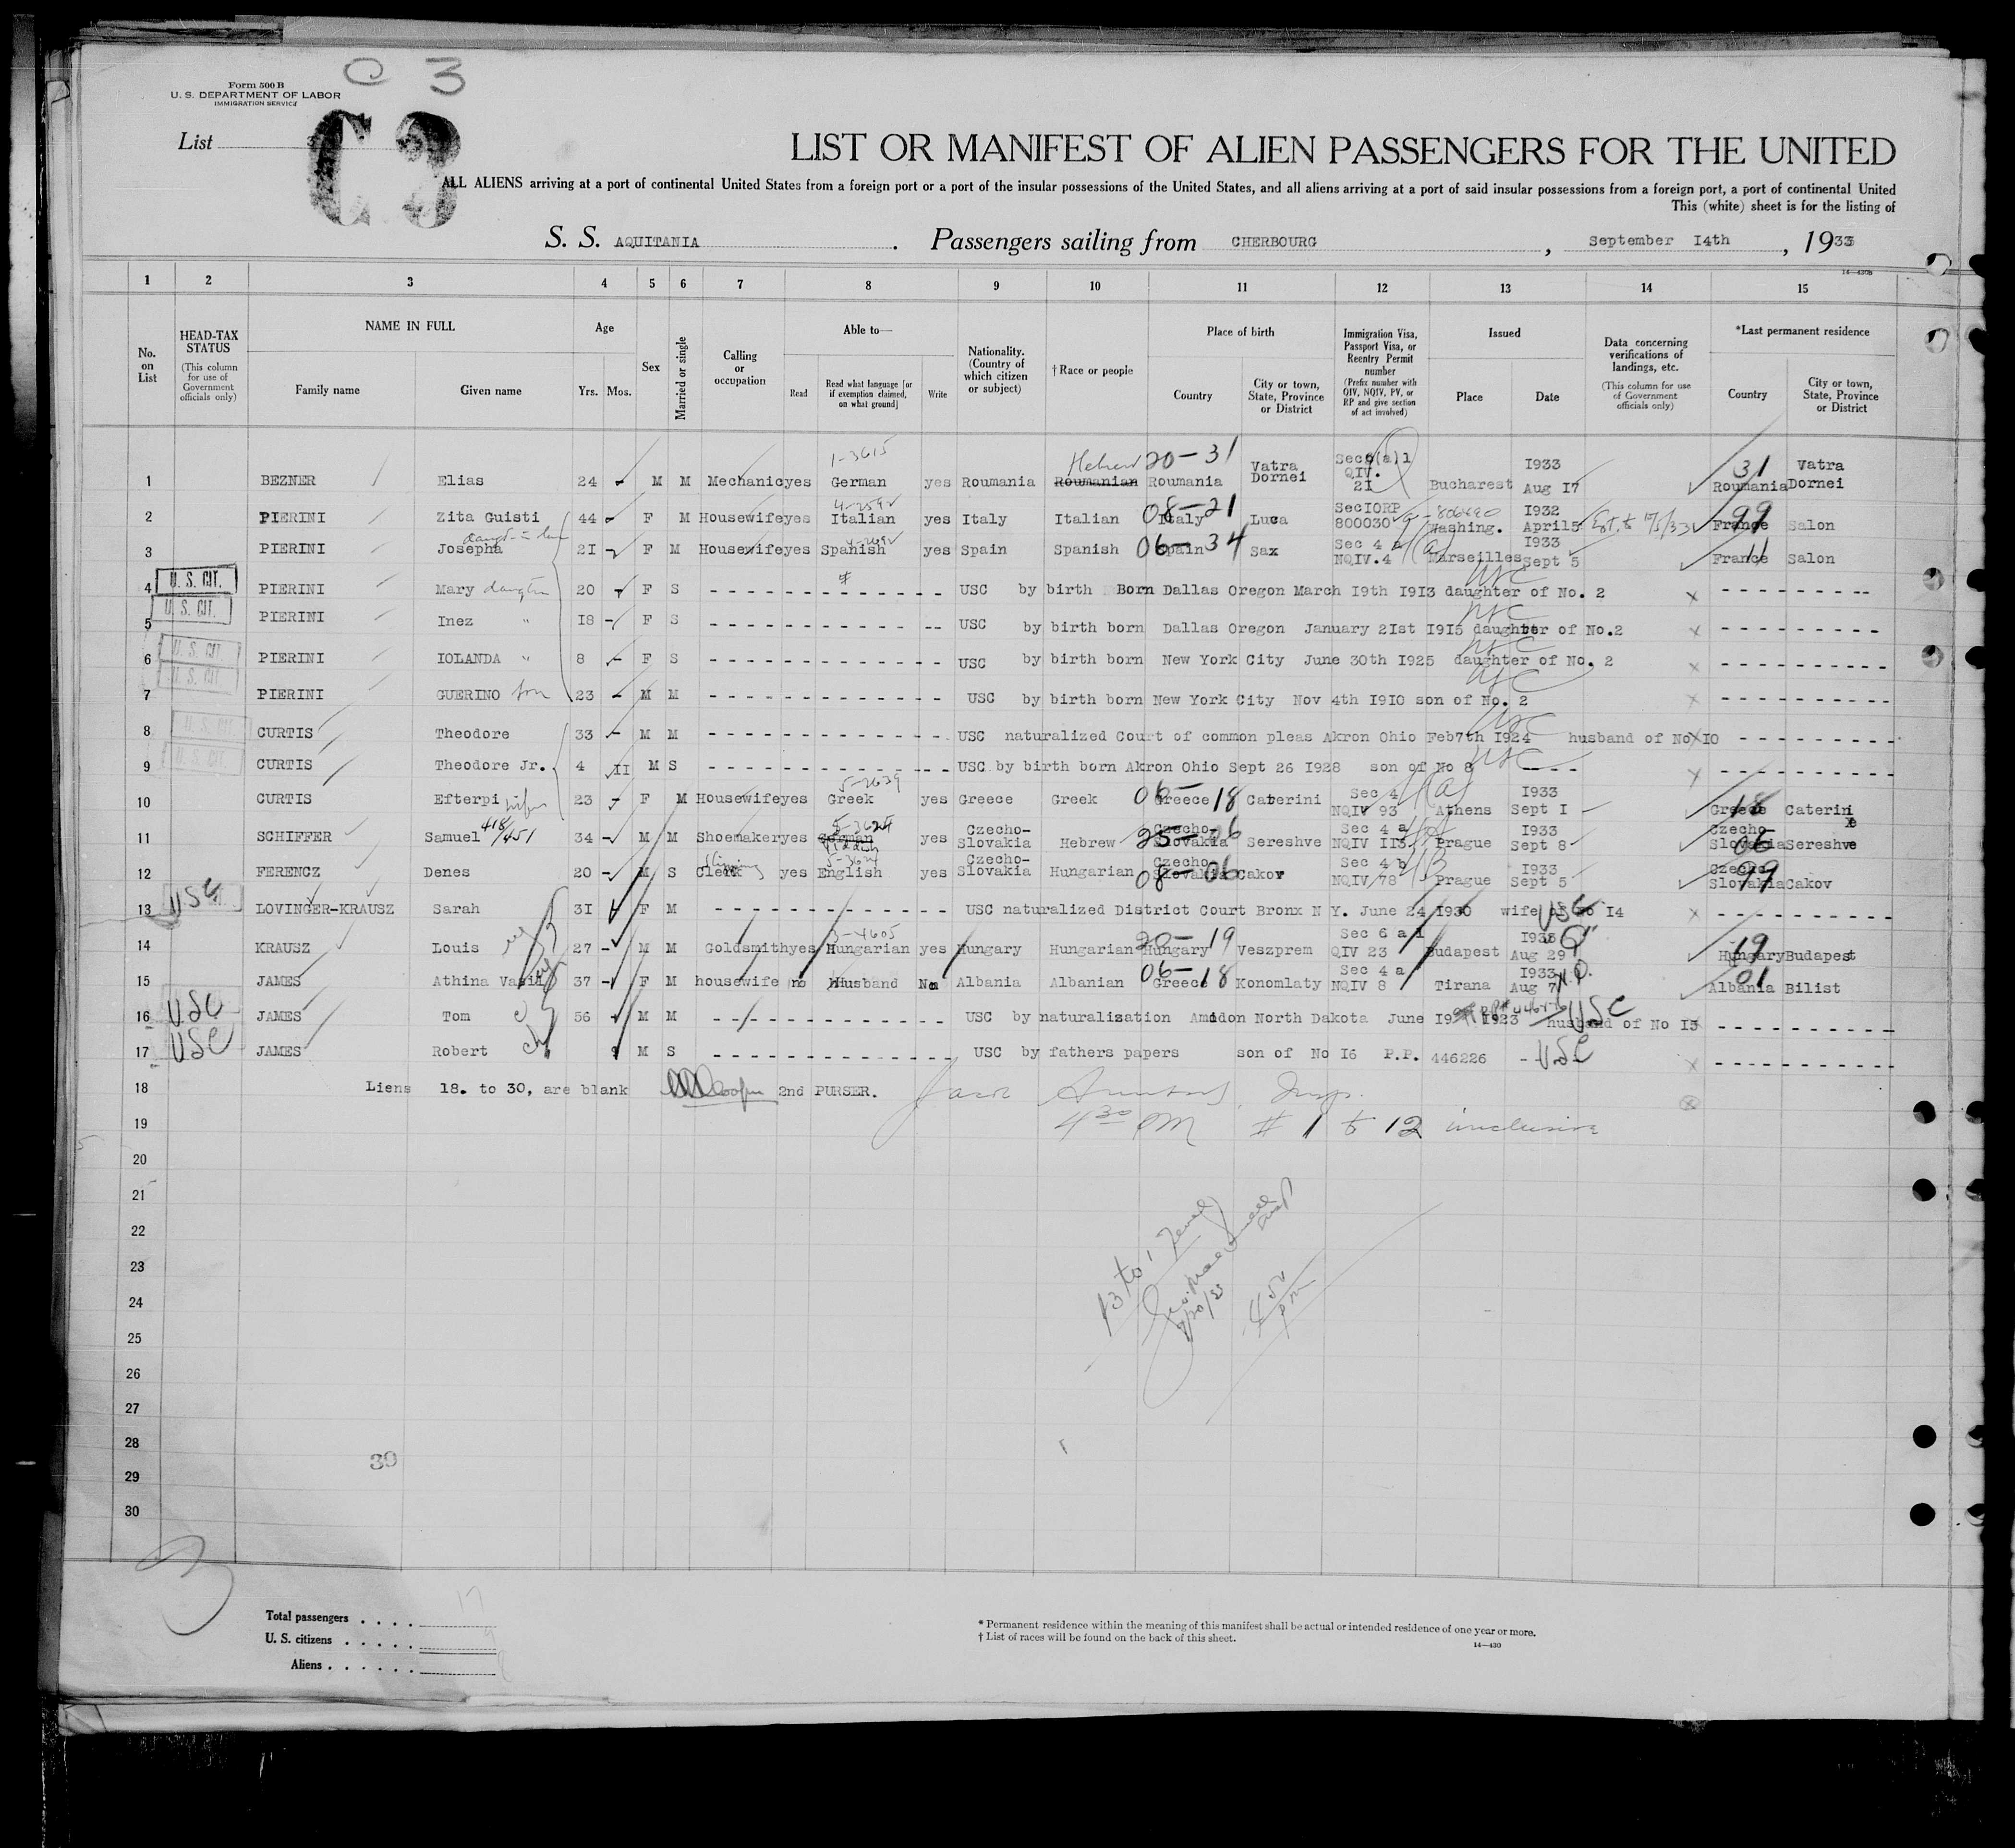 C 3
Form 500 B
U. S. DEPARTMENT OF LABOR
IMMIGRATION SERVICE
List 3
C3
LIST OR MANIFEST OF ALIEN PASSENGERS FOR THE UNITED
ALL ALIENS arriving at a port of continental United States from a foreign port or a port of the insular possessions of the United States, and all aliens arriving at a port of said insular possessions from a foreign port, a port of continental United
This (white) sheet is for the listing of
S. S. AQUITANIA . Passengers sailing from CHERBOURG , September I4th , 1933
1 2 3 4 5 6 7 8 9 10 11 12 13 14 15
No. on List
HEAD-TAX STATUS (This column for use of Government officials only)
NAME IN FULL
Family name Given name
Age
Yrs. Mos.
Sex
Married or single
Calling or occupation
Able to—
Read Read what language [or if exemption claimed, on what ground] Write
Nationality. (Country of which citizen or subject)
†Race or people
Place of birth
Country City or town, State, Province or District
Immigration Visa, Passport Visa, or Reentry Permit number (Prefix number with QIV, NQIV, PV, or RP and give section of act involved)
Issued
Place Date
Data concerning verifications of landings, etc. (This column for use of Government officials only)
*Last permanent residence
Country City or town, State, Province or District
1 BEZNER Elias 24 - M M Mechanic yes 1-3615 German yes Roumania Hebrew Roumanian 20-31 Roumania Vatra Dornei Sec 6(a)1 QIV. 2I Bucharest I933 Aug I7 31 Roumania Vatra Dornei
2 PIERINI Zita Guisti 44 - F M Housewife yes Italian yes Italy Italian 08-21 Italy Luca Sec IORP 800030 Washing. I932 April5 99 France Salon
3 PIERINI Josepha 2I - F M Housewife yes Spanish yes Spain Spanish 06-34 Spain Sax Sec 4 a NQIV.4 Marseilles I933 Sept 5 11 France Salon
4 U. S. CIT. PIERINI Mary 20 - F S USC by birth Born Dallas Oregon March I9th I9I3 daughter of No. 2 USC
5 U. S. CIT. PIERINI Inez " I8 - F S USC by birth born Dallas Oregon January 2Ist I9I5 daughter of No.2 USC
6 U. S. CIT. PIERINI IOLANDA " 8 - F S USC by birth born New York City June 30th I925 daughter of No. 2 USC
7 U. S. CIT. PIERINI GUERINO son 23 - M M USC by birth born New York City Nov 4th I9I0 son of No. 2 USC
8 U. S. CIT. CURTIS Theodore 33 - M M USC naturalized Court of common pleas Akron Ohio Feb7th I924 husband of No IO USC
9 U. S. CIT. CURTIS Theodore Jr. 4 II M S USC by birth born Akron Ohio Sept 26 I928 son of No 8 USC
10 CURTIS Efterpi wife 23 - F M Housewife yes 5-2639 Greek yes Greece Greek 06-18 Greece Caterini Sec 4 (a) NQIV 93 Athens I933 Sept I 18 Greece Caterini
11 SCHIFFER Samuel 418/451 34 - M M Shoemaker yes German Yiddish yes Czecho-Slovakia Hebrew 25-06 Czecho-Slovakia Sereshve Sec 4 a NQIV II3 Prague I933 Sept 8 06 Czecho-Slovakia Sereshve
12 FERENCZ Denes 20 - M S Clerk yes English yes Czecho-Slovakia Hungarian 08-06 Czecho-Slovakia Cakov Sec 4 b NQIV 78 Prague I933 Sept 5 99 Czecho-Slovakia Cakov
13 USC LOVINGER-KRAUSZ Sarah 3I F M USC naturalized District Court Bronx N Y. June 24 I930 wife of No I4 USC
14 KRAUSZ Louis 27 - M M Goldsmith yes 3-4605 Hungarian yes Hungary Hungarian 20-19 Hungary Veszprem Sec 6 a 1 QIV 23 Budapest I933 Aug 29 19 Hungary Budapest
15 JAMES Athina Vasil 37 - F M housewife no Husband No Albania Albanian 06-18 Greece Konomlaty Sec 4 a NQIV 8 Tirana I933 Aug 7 01 Albania Bilist
16 USC JAMES Tom 56 - M M USC by naturalization Amidon North Dakota June I9 I923 husband of No I5 USC
17 USC JAMES Robert 9 M S USC by fathers papers son of No I6 P.P. 446226 USC
18 Liens 18. to 30, are blank 2nd PURSER.
4 30 PM # 1 to 12 inclusive
19
20
21
22
23
24
25
26
27
28
29
30
13 to 17
9/20/33
4 50 pm
39
3
Total passengers . . . . 17
U. S. citizens . . . . . 9
Aliens . . . . . .
* Permanent residence within the meaning of this manifest shall be actual or intended residence of one year or more.
† List of races will be found on the back of this sheet.
14—430